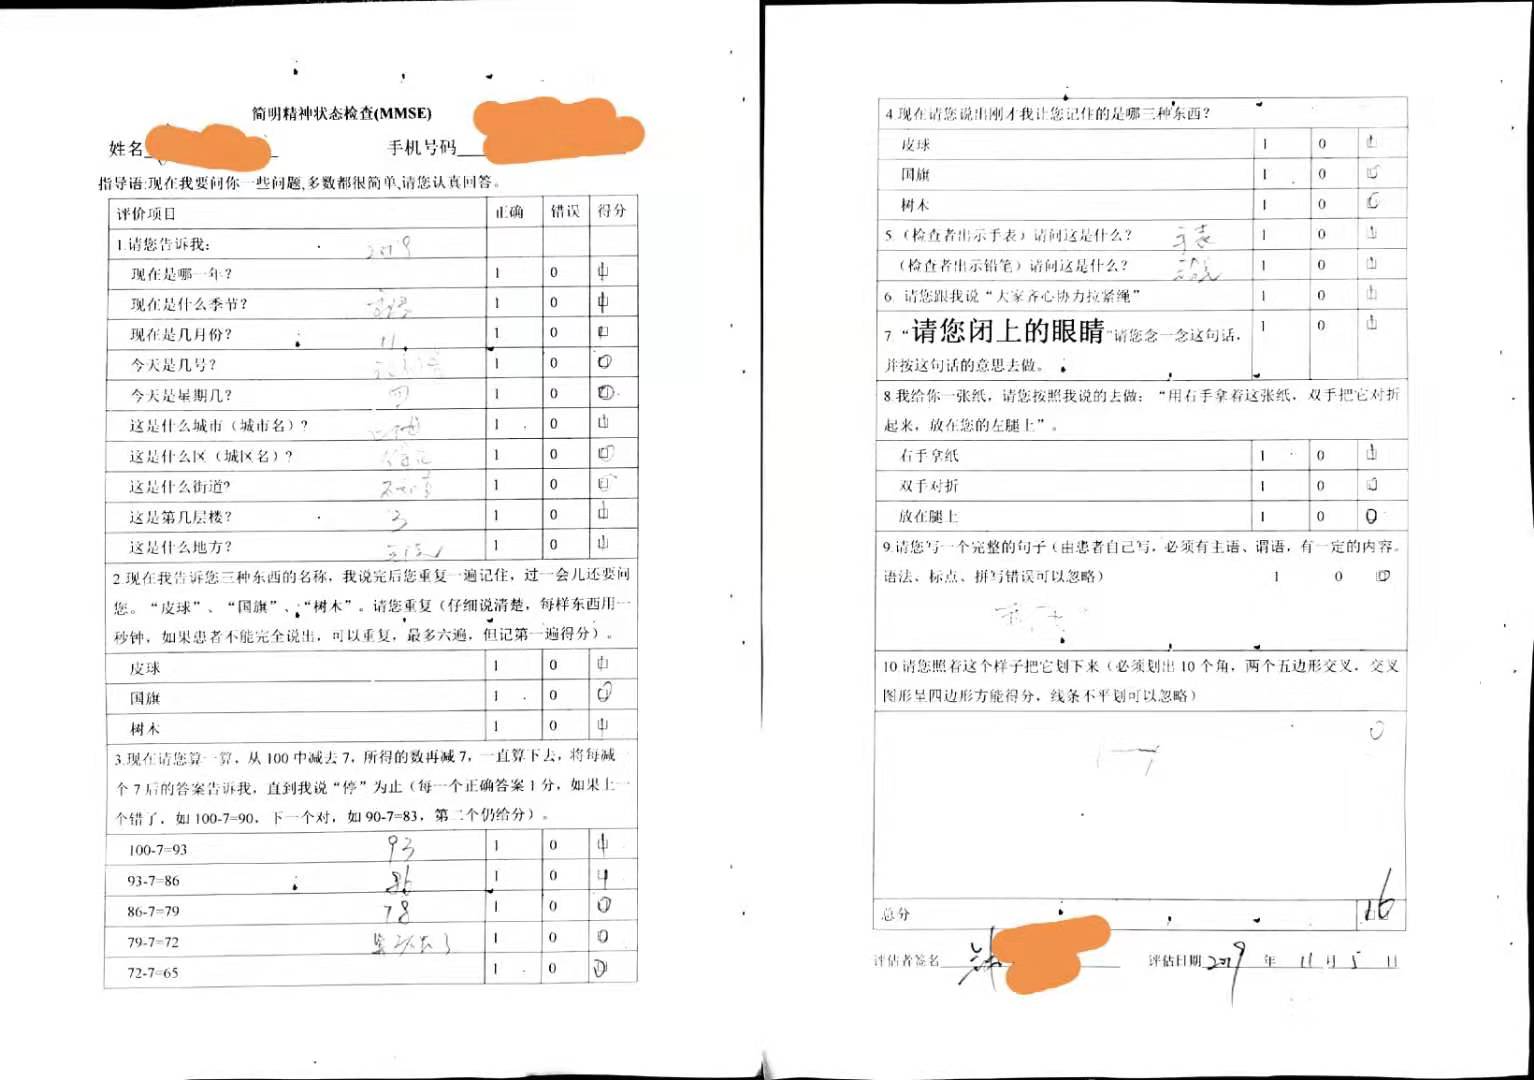 简明精神状态检查(MMSE)
姓名
手机号码
指导语:现在我要问你一些问题,多数都很简单,请您认真回答。
评价项目 正确 错误 得分
1.请您告诉我:
2019
现在是哪一年? 1 0
现在是什么季节? 1 0
现在是几月份? 11 1 0
今天是几号? 1 0
今天是星期几? 四 1 0
这是什么城市(城市名)? 1 0
这是什么区(城区名)? 1 0
这是什么街道? 1 0
这是第几层楼? 3 1 0
这是什么地方? 1 0
2.现在我告诉您三种东西的名称,我说完后您重复一遍记住,过一会儿还要问
您。“皮球”、“国旗”、“树木”。请您重复(仔细说清楚,每样东西用一
秒钟,如果患者不能完全说出,可以重复,最多六遍,但记第一遍得分)。
皮球 1 0
国旗 1 0
树木 1 0
3.现在请您算一算,从100中减去7,所得的数再减7,一直算下去,将每减
个7后的答案告诉我,直到我说“停”为止(每一个正确答案1分,如果上一
个错了,如100-7=90,下一个对,如90-7=83,第二个仍给分)。
100-7=93 93 1 0
93-7=86 86 1 0
86-7=79 78 1 0
79-7=72 1 0
72-7=65 1 0
4.现在请您说出刚才我让您记住的是哪三种东西?
皮球 1 0
国旗 1 0
树木 1 0
5.(检查者出示手表)请问这是什么? 手表 1 0
(检查者出示铅笔)请问这是什么? 1 0
6. 请您跟我说“大家齐心协力拉紧绳” 1 0
7 “请您闭上的眼睛”请您念一念这句话, 1 0
并按这句话的意思去做。
8.我给你一张纸,请您按照我说的去做:“用右手拿着这张纸,双手把它对折
起来,放在您的左腿上”。
右手拿纸 1 0
双手对折 1 0
放在腿上 1 0
9.请您写一个完整的句子(由患者自己写,必须有主语、谓语,有一定的内容。
语法、标点、拼写错误可以忽略) 1 0
10 请您照着这个样子把它划下来(必须划出10个角,两个五边形交叉,交叉
图形呈四边形方能得分,线条不平划可以忽略)
0
总分 16
评估者签名 评估日期 2019 年 11 月 5 日